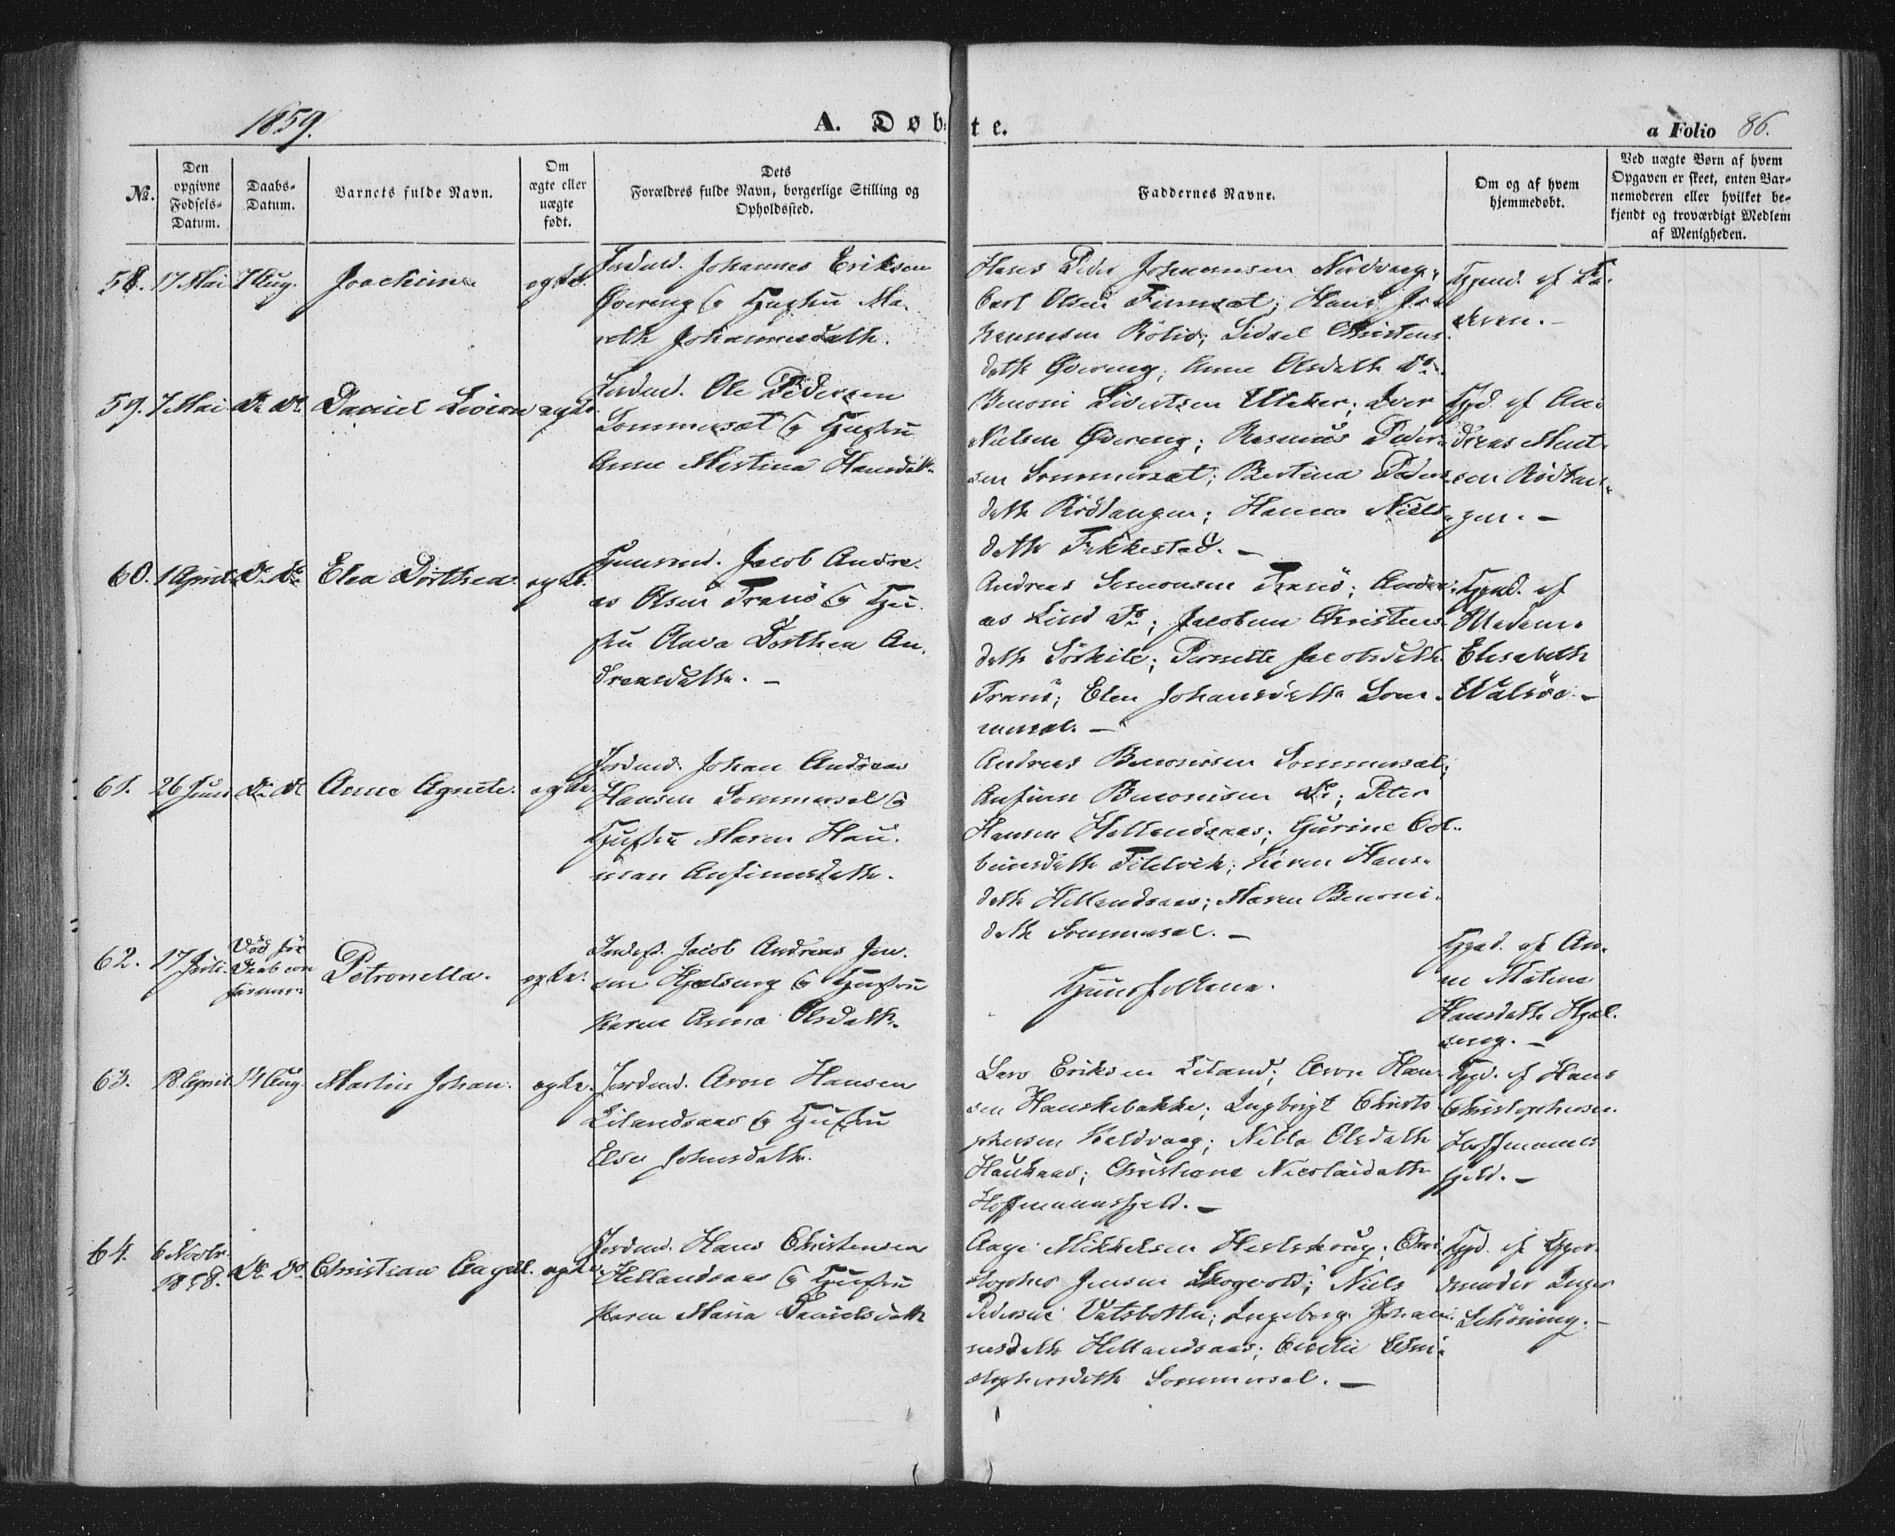 1859.
A. Døbte.
a Folio 86.
No.
Den opgivne Fødsels-Datum.
Daabs-Datum.
Varnets fulde Navn.
Om ægte eller uægte født.
Dets Forældres fulde Navn, borgerlige Stilling og Opholdssted.
Faddernes Navne.
Om og af hvem hjemmedøbt.
Ved uægte Børn af hvem Opgaven er skeet, enten Barnemoderen eller hvilket bekjendt og troværdigt Medlem af Menigheden.
58. 17 Mai 7 Aug. Joachim ægte.
Jordmd. Johannes Eriksen
Øvereng og Hustru Ma-
reth Johannesdatt.
Hans Peder Johannesen Nordvaag;
Carl Olsen Finnset; Hans Jo-
hannesen Røliv; Lidsel Christens
datt Øvereng; Anne Olsdatt Do.
Hjmd. af Fa-
deren.
59. 7 Mai Do. Do. Daniel ægte
Jordmd. Ole Pedersen
Sommerset og Hustru
Anne Martina Hansdatt.
Benoni Sivertsen Uteker; Iver
Nielsen Øvereng; Rasmus Peder-
sen Sommerset; Bertina Peders
datt Rødtangen; Hanna Niels
datt Fikkestad.
Hjd. af An-
dreas Mort-
sen Rødtan-
gen.
60. 1 April Do. Do. Elea Dorthea ægte.
Huusmd. Jacob Andre-
as Olsen Tranø og Hu-
stru Olava Dorthea An-
dreasdatter.
Andreas Simonsen Tranø; Andre-
as Lind Do.; Jacobine Christens
datt Sørkil; Pernille Jacobsdatt
Tranø; Elen Johansdatt Som-
mersel.
Hjmd. af
Madam
Elisabeth
Walsøe.
61. 26 Juni Do. Do. Anne Agnete. ægte.
Jordmd. Johan Andreas
Hansen Sommersel og
Hustru Maren Han-
Anfinnsdatt.
Andreas Benonisen Sommersel;
Anfinn Benonisen Do.; Peter
Hansen Hellandsaas; Gurine Col-
beinsdatt; Karen Hans-
datt Hellandsaas; Maren Benoni-
datt Sommersel.
62. 17 Død før
Daab con-
firmeres
Petronella. ægte.
Jacob Andreas Jen-
sen Hjelseng og Hustru
Karen Anna Olsdatt.
Huusfolkene.
Hjmd. af An-
ne Martina
Hansdatt Hjel-
seng.
63. 18 April 14 Aug. Martin Johan. ægte.
Jordmd. Aron Hansen
Lilandsaas og Hustru
Else Johnsdatt.
Lars Eriksen Liland; Aron Han-
sen Hanskebakke; Ingbrigt Christo-
phersen Kaldvaag; Nilla Olsdatt
Haukaas; Christiane Nicolaidatt
Hoffmannsfjeld.
Hjd. af Hans
Christophersen
Hoffmanns
fjeld.
64. 6 Novbr. 1858. Do. Do. Christian ægte
Jordmd. Hans Christensen
Hellandsaas og Hustru
Karen Maria Danielsdatt
Aage Mikkelsen Hestskrug; Chri-
stopher Jensen Skogvold; Niels
Pedersen Vatsbotn; Ingeborg Johan-
nesdatt Hellandsaas; Cecilie Chri-
stophersdatt Sommersel.
Hjd. af Gjor-
demoder Inger
Schöning.